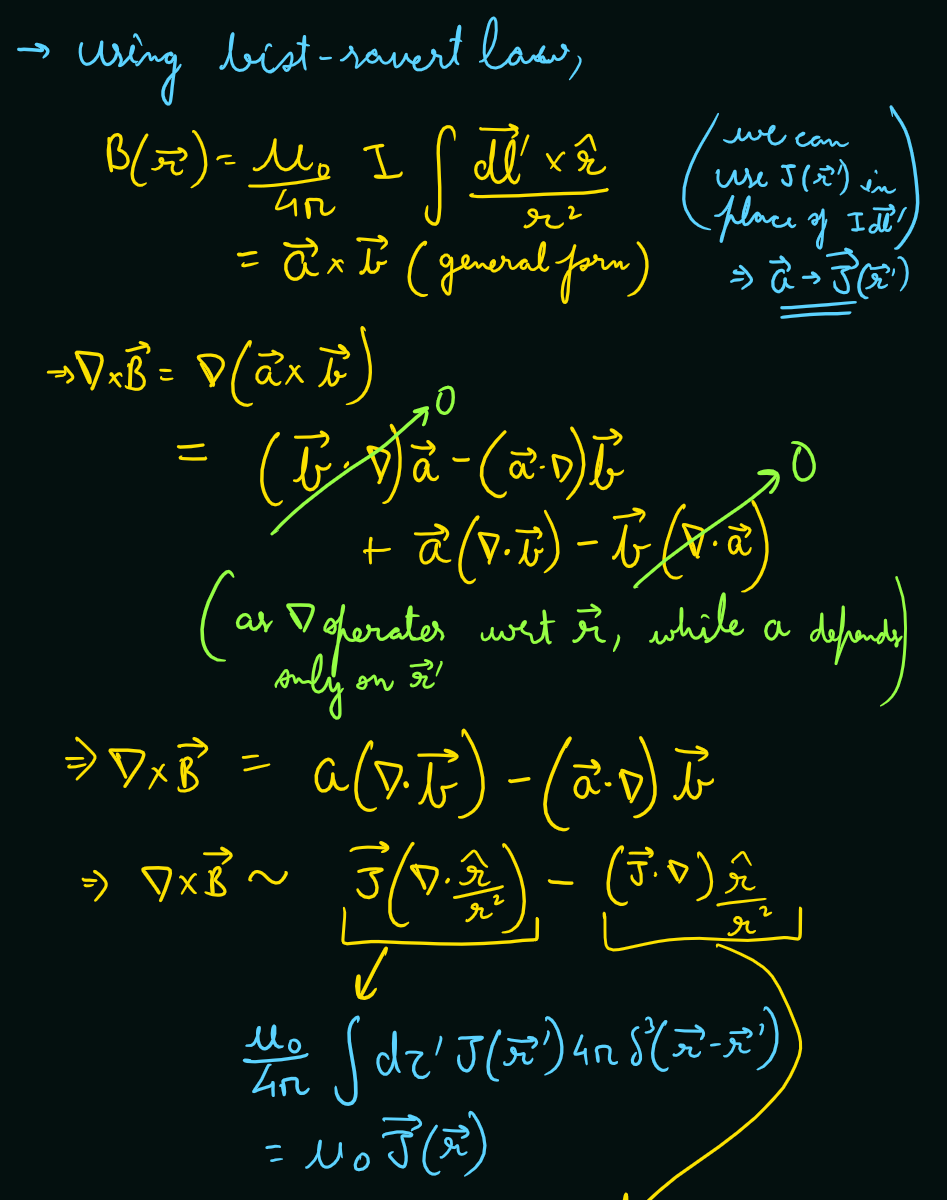 → using biot-savert law,
B(r⃗) = μ₀/4π I ∫ d⃗l' × r̂ / r²
(we can
use J(r⃗') in
place of I d⃗l')
⇒ a⃗ → J⃗(r⃗')
= a⃗ × b⃗ (general form)
⇒ ∇×B⃗ = ∇(a⃗ × b⃗)
= (b⃗·∇)a⃗ - (a⃗·∇)b⃗
0
+ a⃗(∇·b⃗) - b⃗(∇·a⃗)
0
(as ∇ operates wrt r⃗, while a depends
only on r⃗')
⇒ ∇×B⃗ = a(∇·b⃗) - (a⃗·∇)b⃗
⇒ ∇×B⃗ ~ J⃗(∇·r̂/r²) - (J⃗·∇) r̂/r²
μ₀/4π ∫ dτ' J(r⃗') 4π δ³(r⃗-r⃗')
= μ₀ J⃗(r⃗)